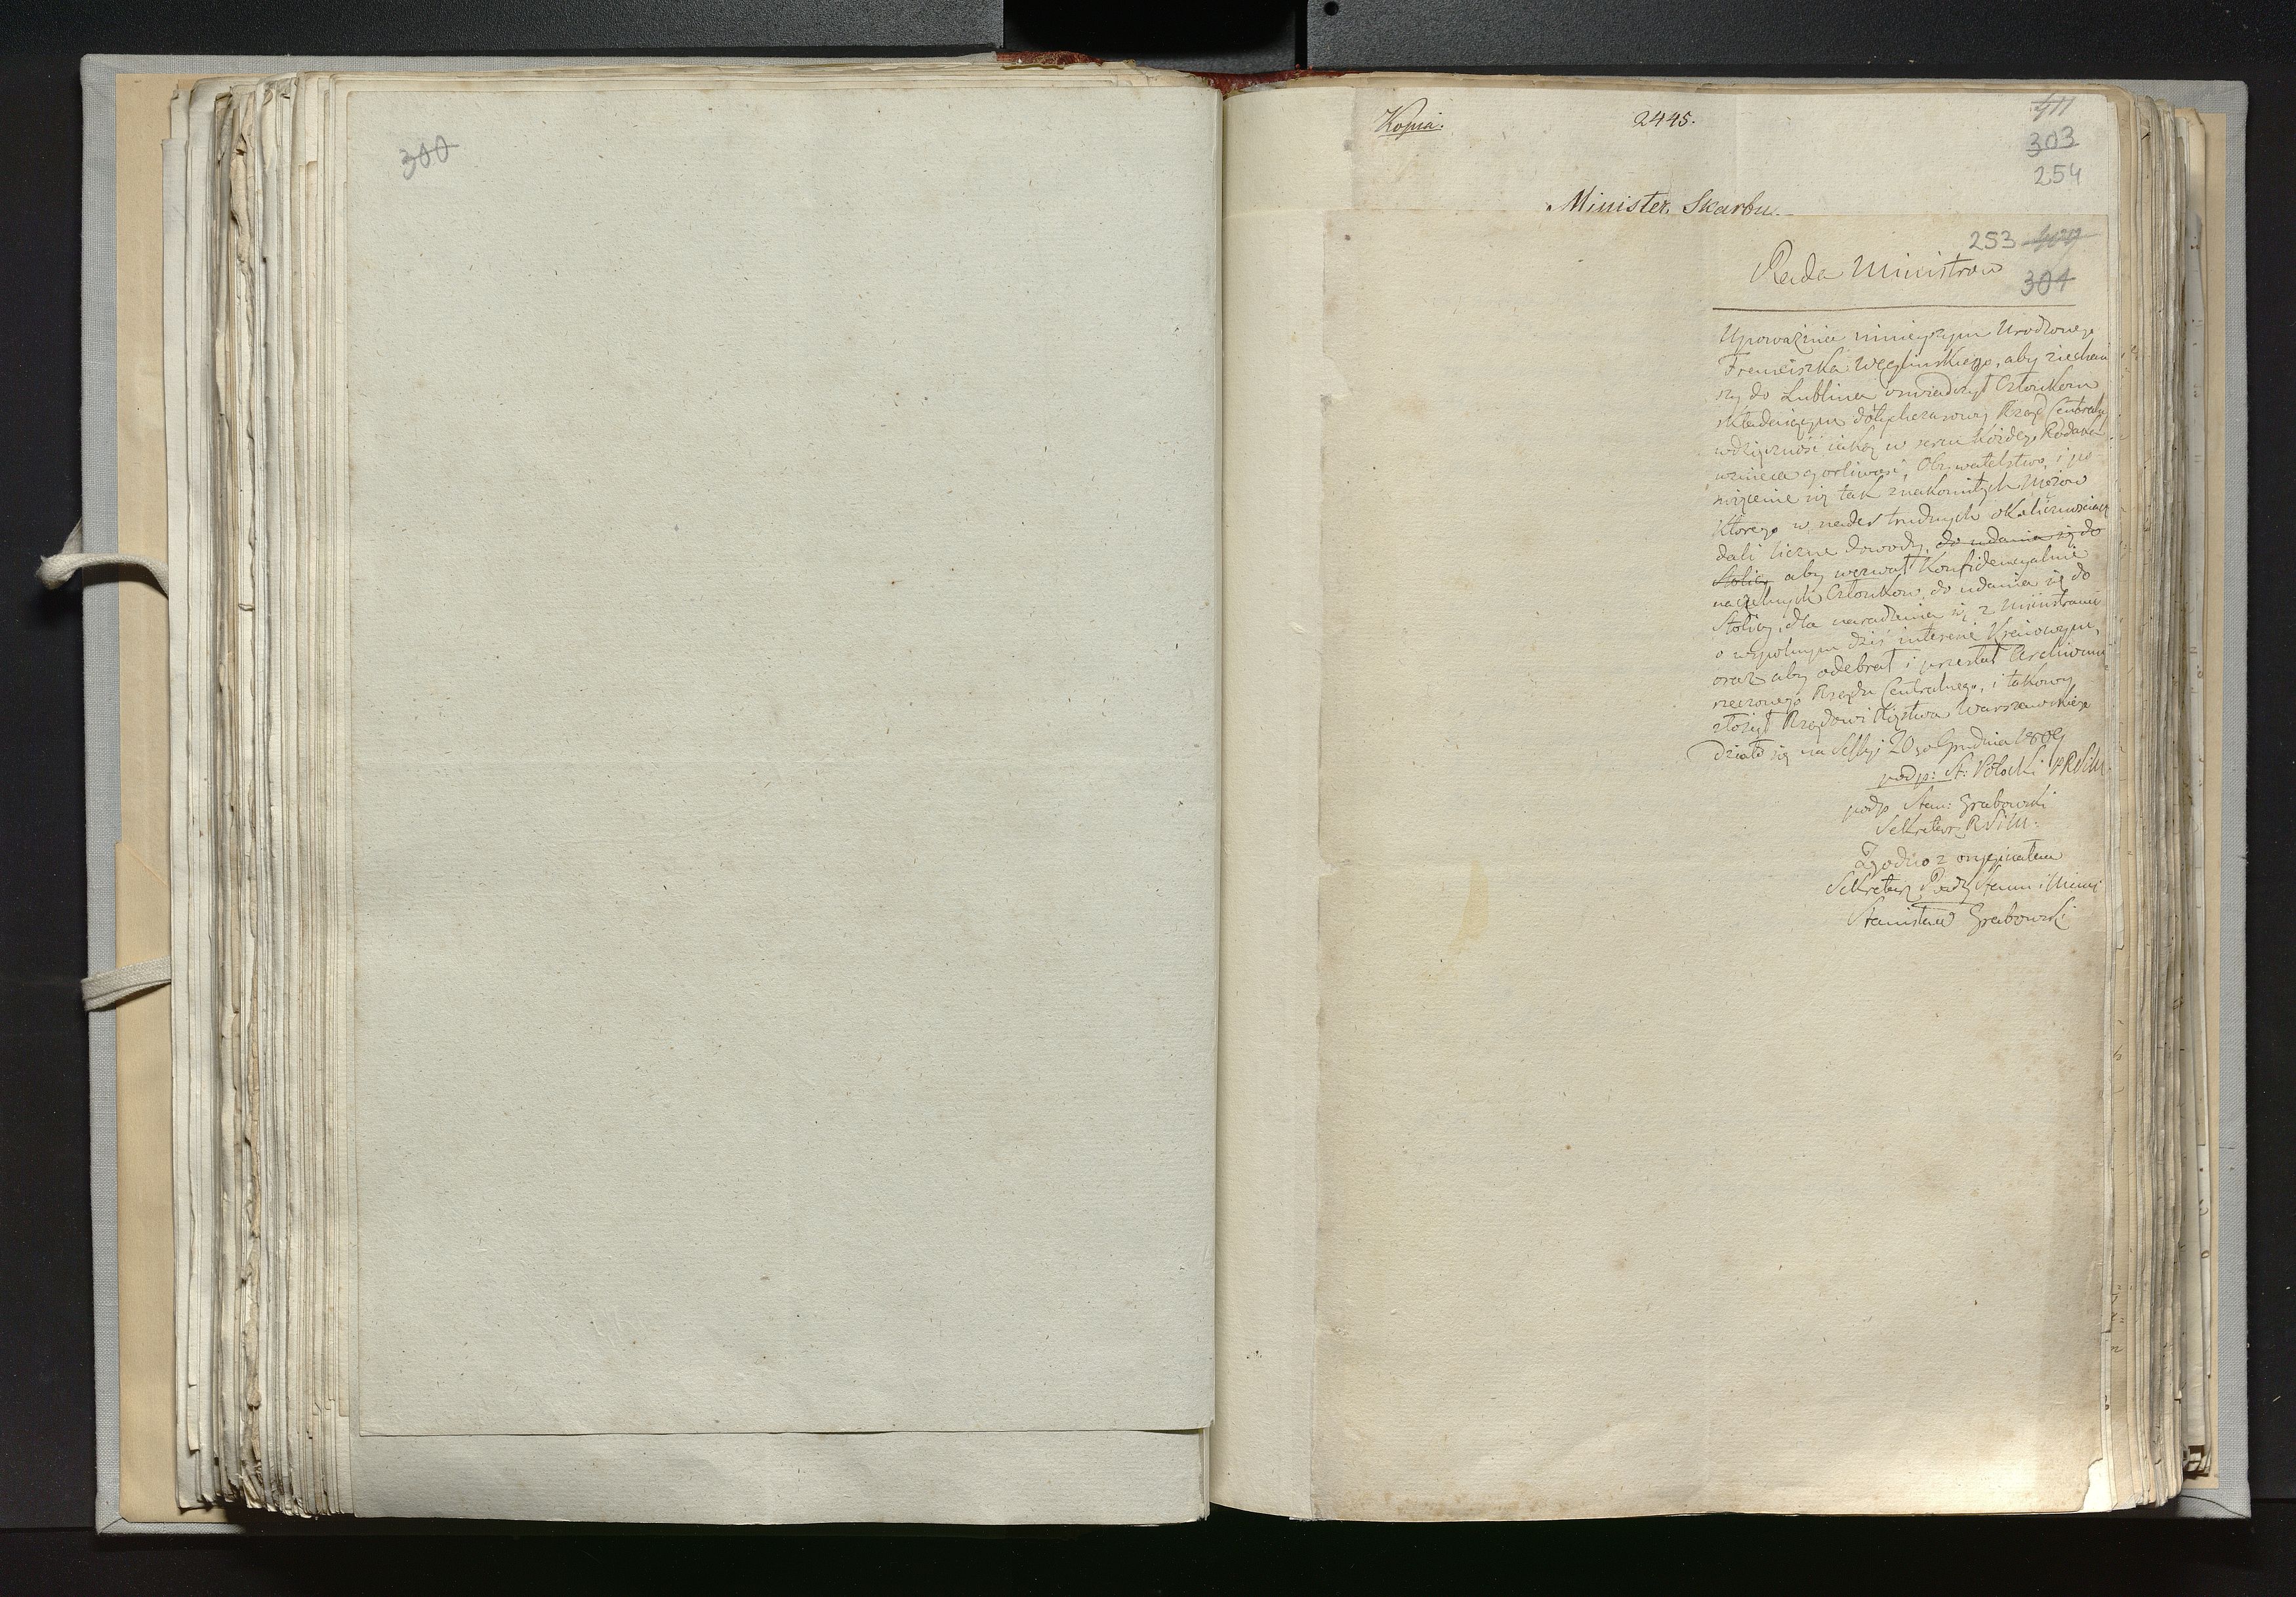 300
Kopia.
2445.
411
303
254
Minister Skarbu.
253
304
Rada Ministrow
Upoważnia ninieyszym Urodzonego
Franciszka Węglinskiego, aby ziechaw
szy do Lublina oswiadczył Członkom
składaiącym dotychczasowy Rząd Centralny
wdzięczność iaką w sercu każdego Rodaka
wznieca gorliwość, Obywatelstwo, i po
swięcenie się tak znakomitych Mężow
Ktorego w nader trudnych okolicznosciach
dali liczne dowody, do udania się do
Stolicy aby wezwał Konfidencyalnie
naczelnych Członkow do udania się do
Stolicy, dla naradzenia się z Ministrami
o wspolnym dziś interesie Kraiowym,
oraz aby odebrał i przesłał Archiwum
rzeczonego Rządu Centralnego, i takowy
złożył Rządowi Xięstwa Warszawskiego
Działo się na Sessyi 20 Grudnia 1809
podp: St: Potocki PRSiM
podp Stan: Grabowski
Sekretarz RSiM:
Zgodno z oryginałem
Sekretarz Rady Stanu i Minis
Stanisław Grabowski